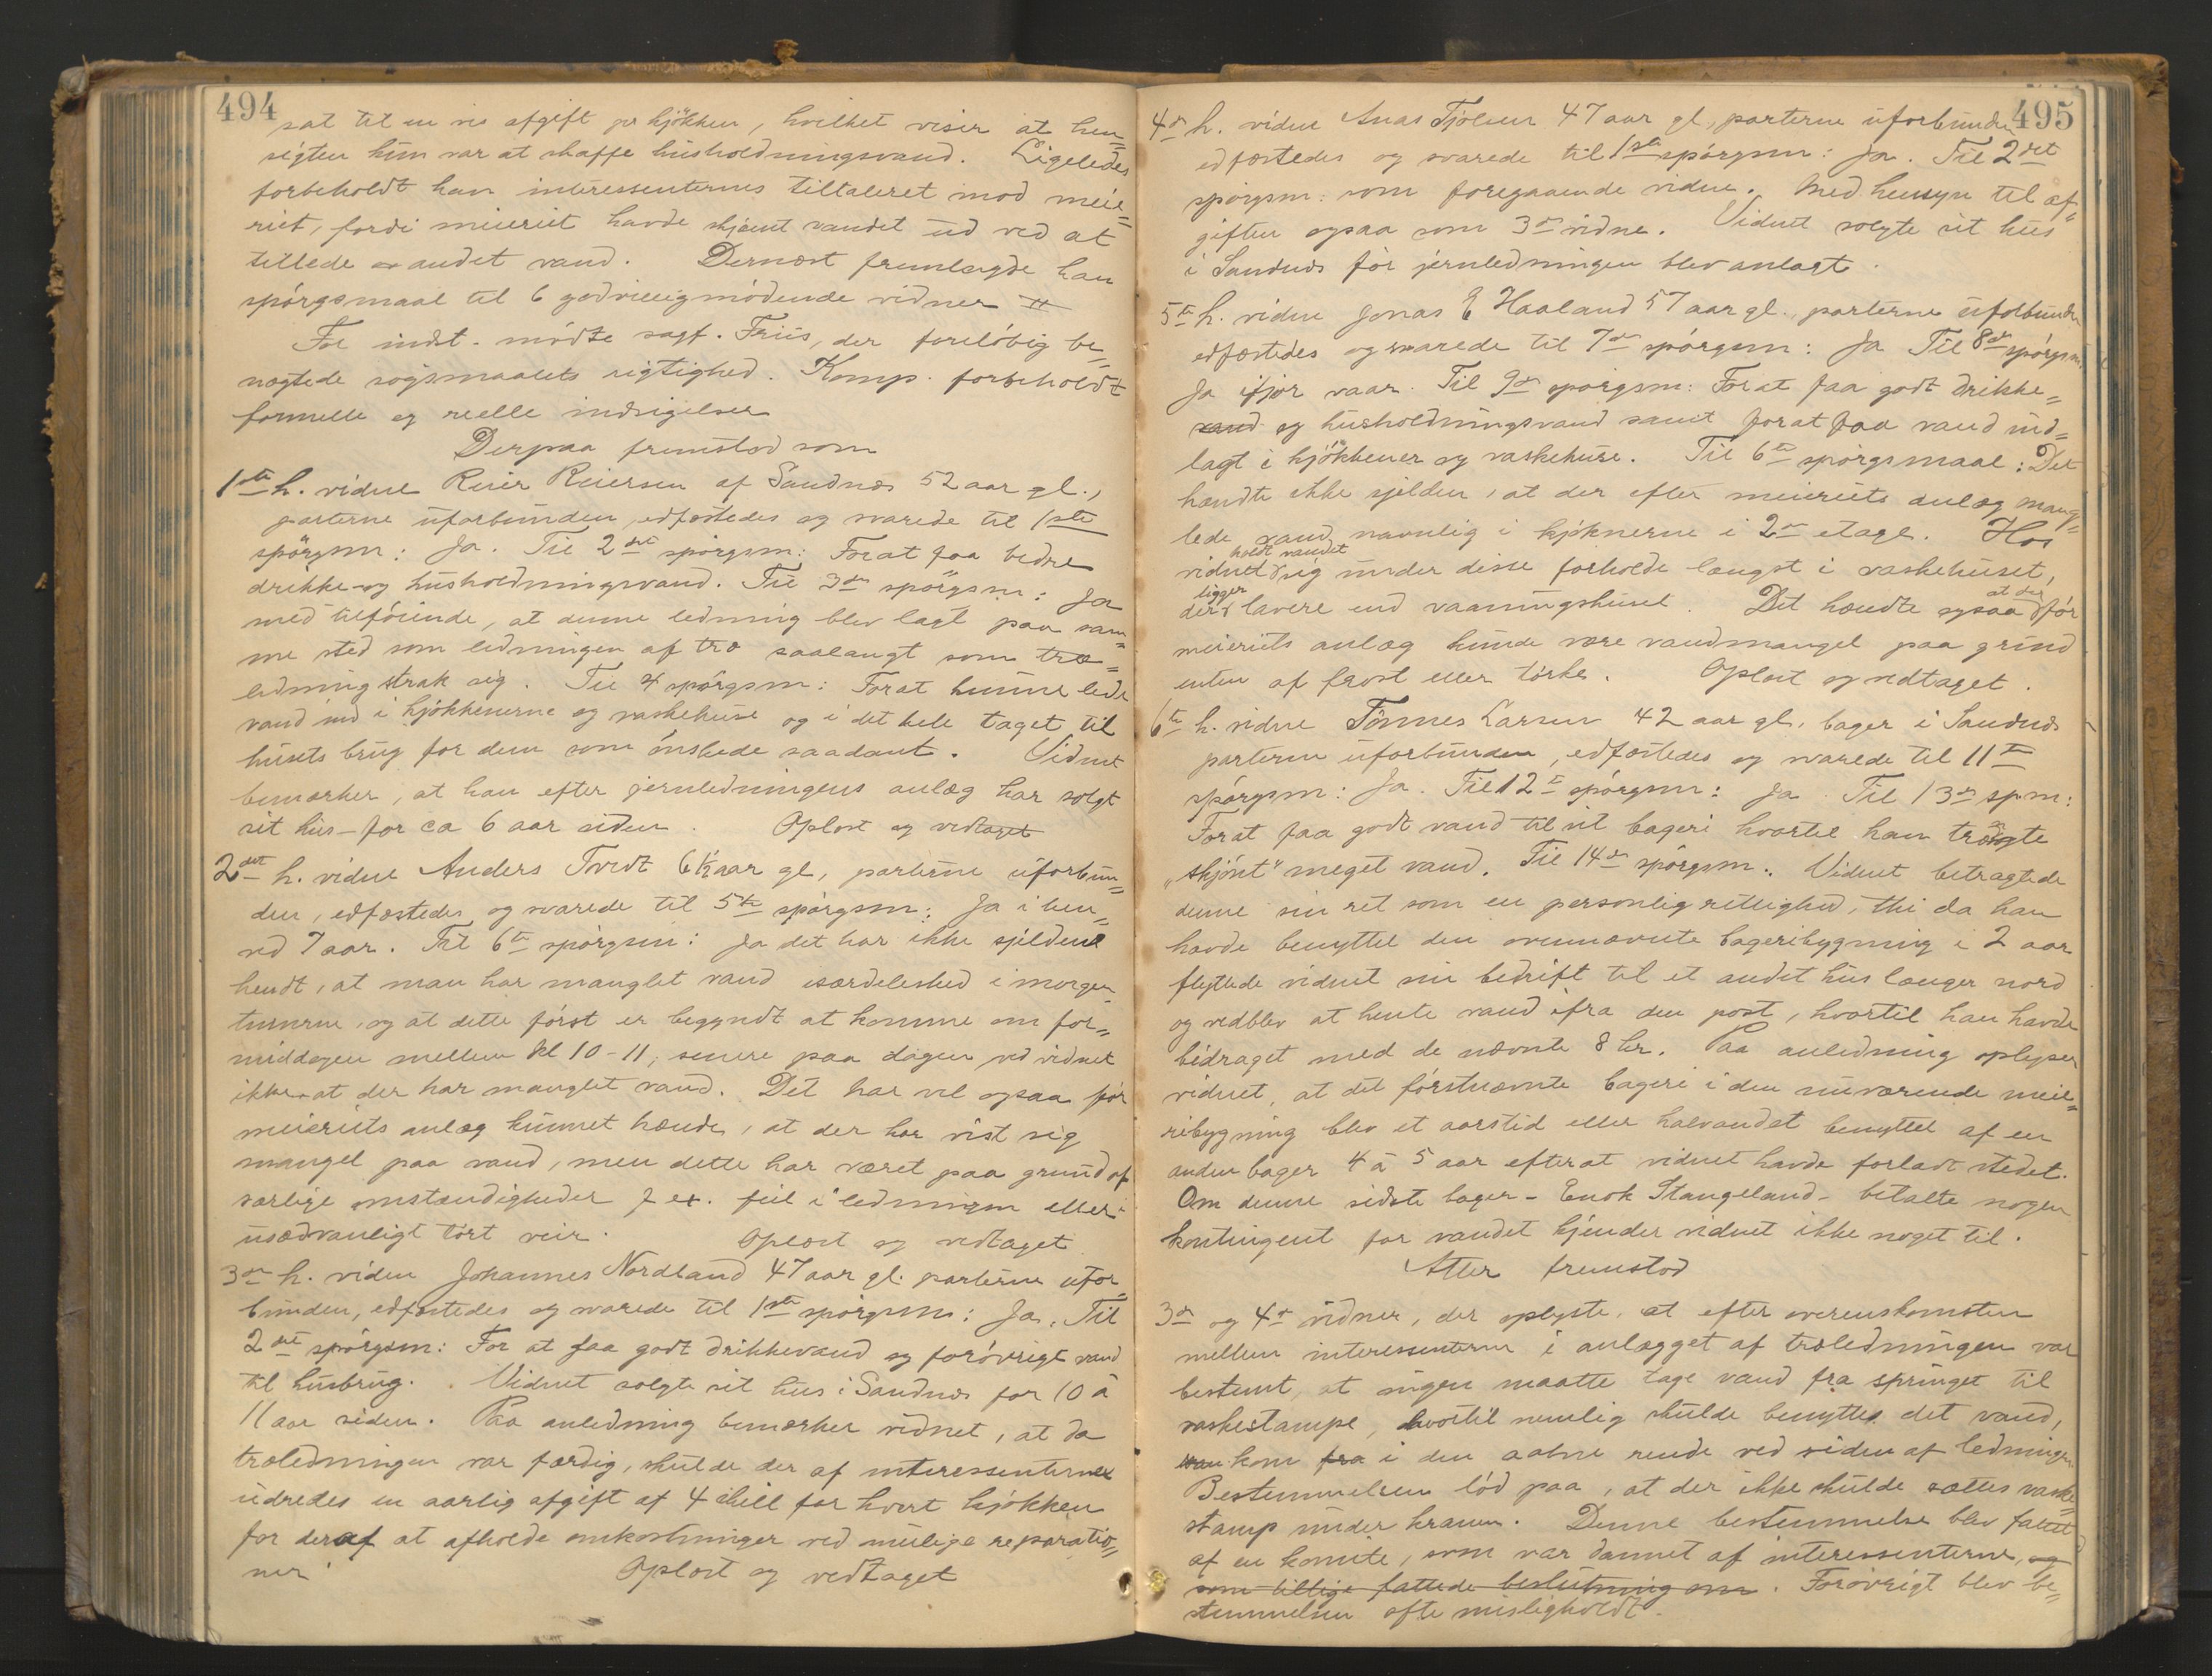 494
sat til en vis afgift pr kjøkken, hvilket viser at hen-
sigten kun var at skaffe husholdningsvand. Ligeledes
forbeholdt han interessenternes tiltaleret mod meie-
riet, fordi meieriet havde skjæmt vandet ud ved at
tillede andet vand. Dernæst fremlagde han
spørgsmaal til 6 godvillig mødende vidner
For indst. mødte sagf. Friis, der foreløbig be-
nægtede søgsmaalets rigtighed. Komp. forbeholdt
formelle og reelle indsigelser
Derpaa fremstod som
1ste h. vidne Reier Reiersen af Sandnæs 52 aar gl.,
parterne uforbunden, edfæstedes og svarede til 1ste
spørgsm: Ja. Til 2det spørgsm: Forat faa bedre
drikke- og husholdningsvand. Til 3die spørgsm: Ja
med tilføiende, at denne ledning blev lagt paa sam-
me sted som ledningen af træ saalangt som træ-
ledning strak sig. Til 4 spørgsm: Forat kunne lede
vand ind i kjøkkenerne og vaskehuse og i det hele taget til
husets brug for dem som ønskede saadant. Vidnet
bemærker, at han efter jernledningens anlæg har solgt
sit hus - for ca 6 aar siden. Oplæst og vedtaget
2det h. vidne Anders Tvedt 61½ aar gl, parterne uforbun-
den, edfæstedes og svarede til 5te spørgsm: Ja i hen-
ved 7 aar. Til 6te spørgsm: Ja det har ikke sjeldent
hendt, at man har manglet vand isærdeleshed i morgen-
timerne, og at dette først er begyndt at komme om for-
middagen mellem kl 10-11, senere paa dagen ved vidnet
ikke at der har manglet vand. Det har vel ogsaa før
meieriets anlæg kunnet hænde, at der har vist sig
mangel paa vand, men dette har været paa grund af
særlige omstændigheder f ex. feil i ledningen eller
usædvanligt tørt veir. Oplæst og vedtaget
3die h. vidne Johannes Nordland 47 aar gl. parterne ufor-
bunden, edfæstedes og svarede til 1ste spørgsm: Ja. Til
2det spørgsm: For at faa godt drikkevand og forøvrigt vand
til husbrug. Vidnet solgte sit hus i Sandnæs for 10 à
11 aar siden. Paa anledning bemærker vidnet, at da
træledningen var færdig, skulde der af interessenterne
udredes en aarlig afgift af 4 skill for hvert kjøkken
for deraf at afholde omkostninger ved mulige reparatio-
ner Oplæst og vedtaget
495
4de h. vidne Anas Tjølsen 47 aar gl, parterne uforbunden
edfæstedes og svarede til 1ste spørgsm: Ja. Til 2det
spørgsm: som foregaaende vidne. Med hensyn til af-
giften ogsaa som 3die vidne. Vidnet solgte sit hus
i Sandnæs før jernledningen blev anlagt.
5te h. vidne Jonas E Haaland 57 aar gl., parterne uforbunden
edfæstedes og svarede til 7de spørgsm: Ja Til 8de spørgsm:
Ja ifjor vaar. Til 9de spørgsm: Forat faa godt drikke-
vand og husholdningsvand samt forat faa vand ind-
lagt i kjøkkener og vaskehuse. Til 6te spørgsmaal: Det
hændte ikke sjelden, at der efter meieriets anlæg mang-
lede vand navnlig i kjøknerne i 2den etage. Hos
vidnet holdt vandet sig under disse forholde længst i vaskehuset,
der ligger lavere end vaaningshuset. Det hændte ogsaa at der før
meieriets anlæg kunde være vandmangel paa grund
enten af frost eller tørke. Oplæst og vedtaget.
6te h. vidne Tønnes Larsen 42 aar gl. bager i Sandnæs
parterne uforbunden, edfæstedes og svarede til 11te
spørgsm: Ja. Til 12te spørgsm: Ja Til 13de spm:
Forat faa godt vand til sit bageri hvortil han trængte
"skjønt" meget vand. Til 14de spørgsm: Vidnet betragtede
denne sin ret som en personlig rettighed, thi da han
havde benyttet den ovennævnte bageribygning i 2 aar
flyttede vidnet sin bedrift til et andet hus længer nord
og vedblev at hente vand ifra den post, hvortil han havde
bidraget med de nævnte 8 kr. Paa anledning oplyser
vidnet, at det førstnævnte bageri i den nuværende meie-
ribygning blev et aarstid eller halvandet benyttet af en
anden bager 4 à 5 aar efterat vidnet havde forladt stedet.
Om denne sidste bager - Enok Stangeland - betalte nogen
kontingent for vandet kjender vidnet ikke noget til.
Atter fremstod
3die og 4de vidner, der oplyste, at efter overenskomsten
mellem interessenterne i anlægget af træledningen var
bestemt, at ingen maatte tage vand fra springet til
vaskestampe, hvortil nemlig skulde benyttes det vand,
man kom fra i den aabne rende ved siden af ledningen
Bestemmelsen lød paa, at der ikke skulde sættes vaske-
stamp under kranen. Denne bestemmelse blev fattet
af en komite, som var dannet af interessenterne, og
som tillige fattede beslutning om. Forøvrigt blev be-
stemmelsen ofte misligholdt.